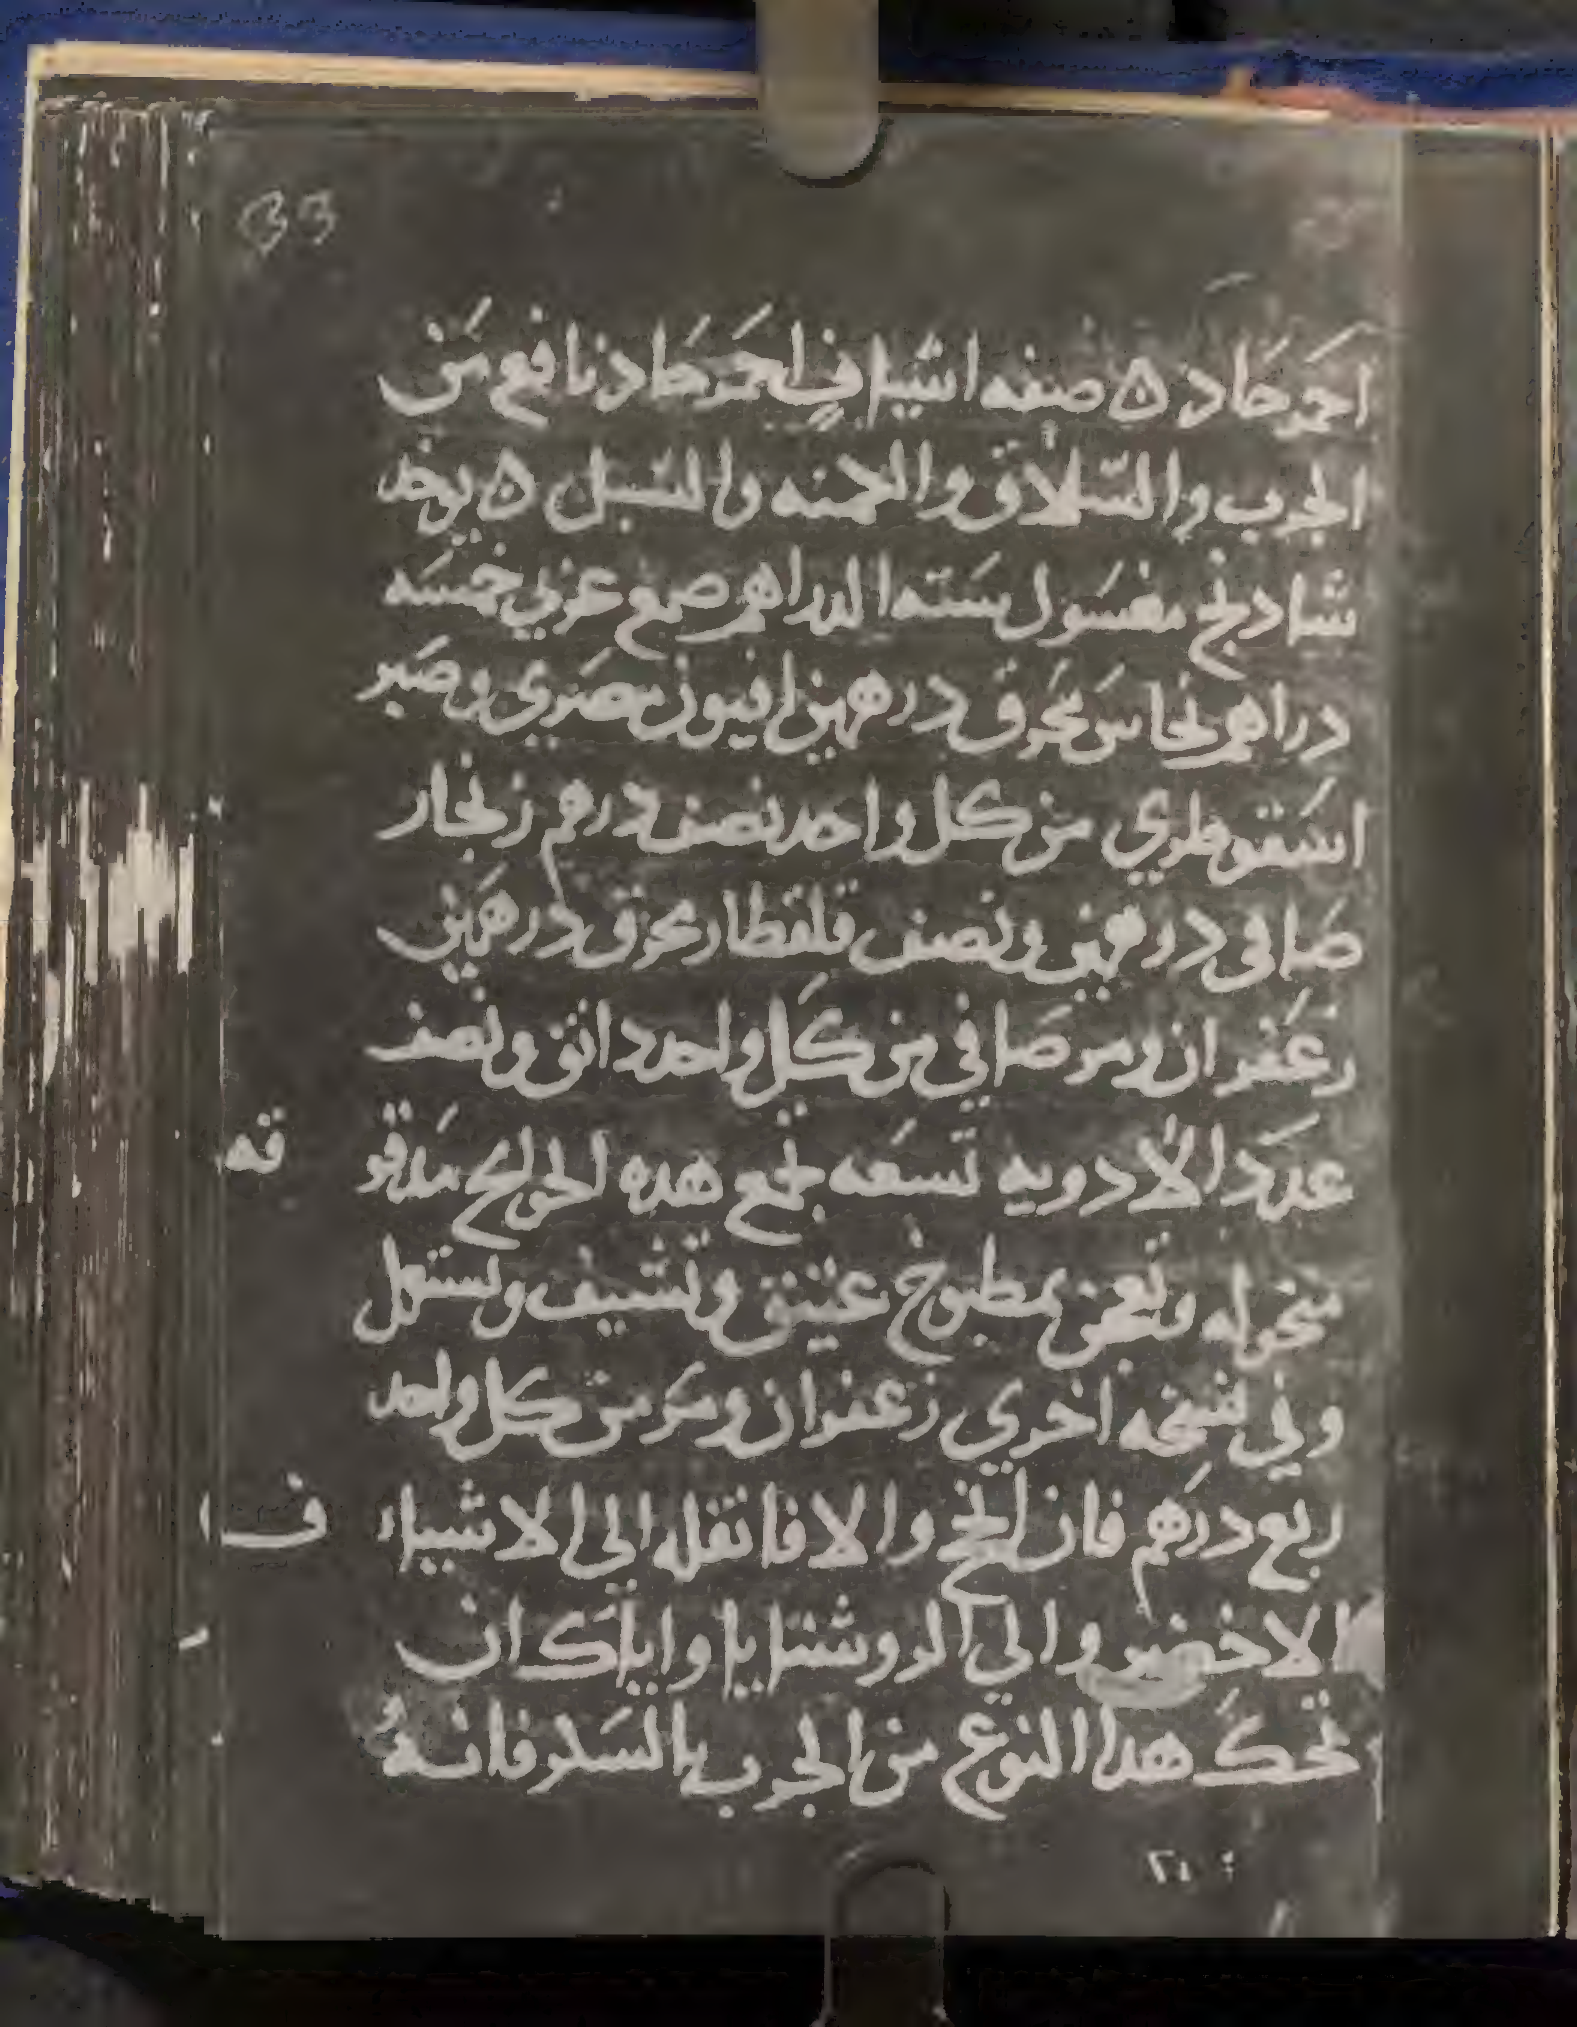 33
احمر حاد ٥ صفه اشياف احمر حاد نافع من
الجرب والسّلاق والحمنه والسبل ٥ يوخد
شادنج مغسول سته الدراهم صمغ عربي خمسه
دراهم نحاس محرق درهمين افيون مصري وصبر
اسقوطري من كل واحد نصف درهم زنجار
صافى درهمين ونصف قلقطار محرق درهمين
زعفران ومر صافي من كل واحد دانق ونصف
عدد الادويه تسعه تجمع هده الحوايج مدقو قه
منخوله وتعجن بمطبوخ عتيق وتشيف وتستعمل
وفي نسخه اخري زعفران ومر من كل واحد
ربع درهم فان انجح والا فانقله الى الاشياء ف ا
الاخضر والي الروشنايا واياك ان
تحك هدا النوع من الجرب بالسكر فانه